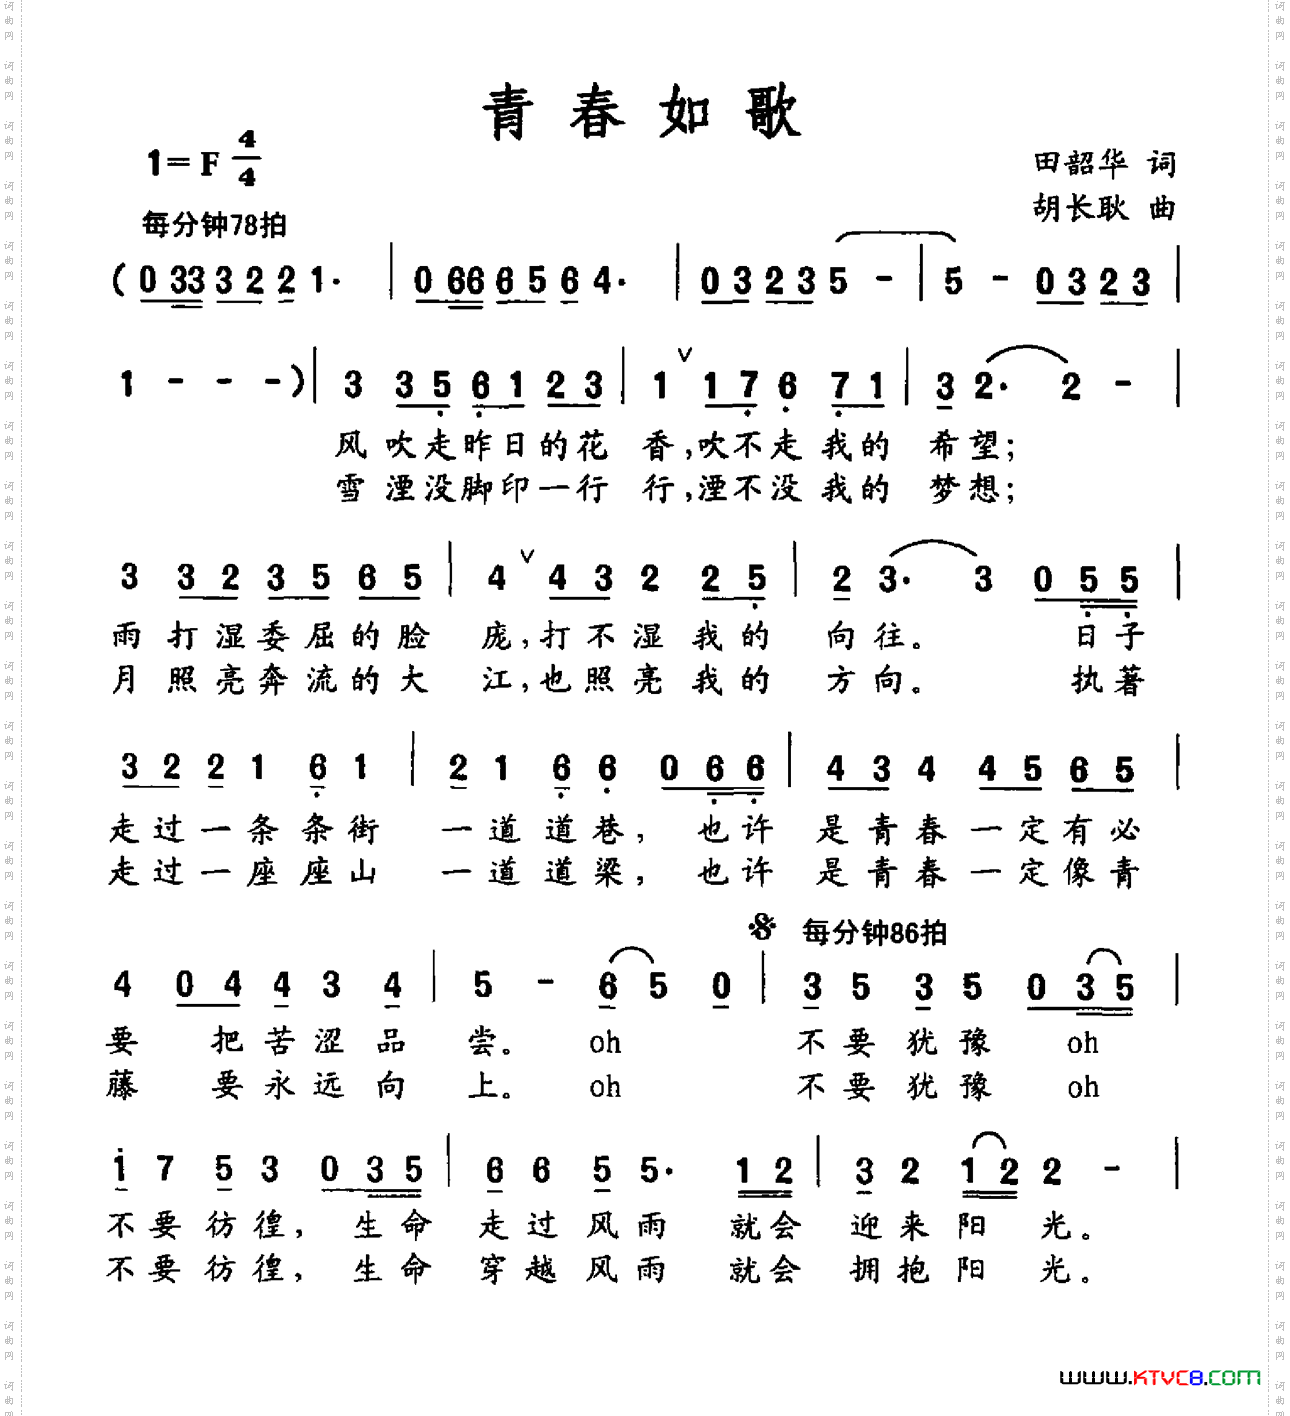 青春如歌
1=F 4/4
田韶华 词
每分钟78拍
胡长耿 曲
(0 33 3 2 2 1· | 0 66 6 5 6 4· | 0 3 2 3 5 - | 5 - 0 3 2 3 |
1 - - -) | 3 3 5 6 1 2 3 | 1 ∨ 1 7 6 7 1 | 3 2· 2 - |
风 吹走昨日的花 香,吹不走 我的 希望;
雪 湮没脚印一行 行,湮不没 我的 梦想;
3 3 2 3 5 6 5 | 4 ∨ 4 3 2 2 5 | 2 3· 3 0 5 5 |
雨 打湿委屈的脸 庞,打不湿 我的 向往。 日子
月 照亮奔流的大 江,也照亮 我的 方向。 执著
3 2 2 1 6 1 | 2 1 6 6 0 6 6 | 4 3 4 4 5 6 5 |
走过一条条街 一道道巷, 也许 是青春一定有必
走过一座座山 一道道梁, 也许 是青春一定像青
每分钟86拍
4 0 4 4 3 4 | 5 - 6 5 0 | 3 5 3 5 0 3 5 |
要 把苦涩品 尝。 oh 不要犹豫 oh
藤 要永远向 上。 oh 不要犹豫 oh
1 7 5 3 0 3 5 | 6 6 5 5· 1 2 | 3 2 1 2 2 - |
不要彷徨, 生命 走过风雨 就会 迎来阳 光。
不要彷徨, 生命 穿越风雨 就会 拥抱阳 光。
www.KTVC8.COM